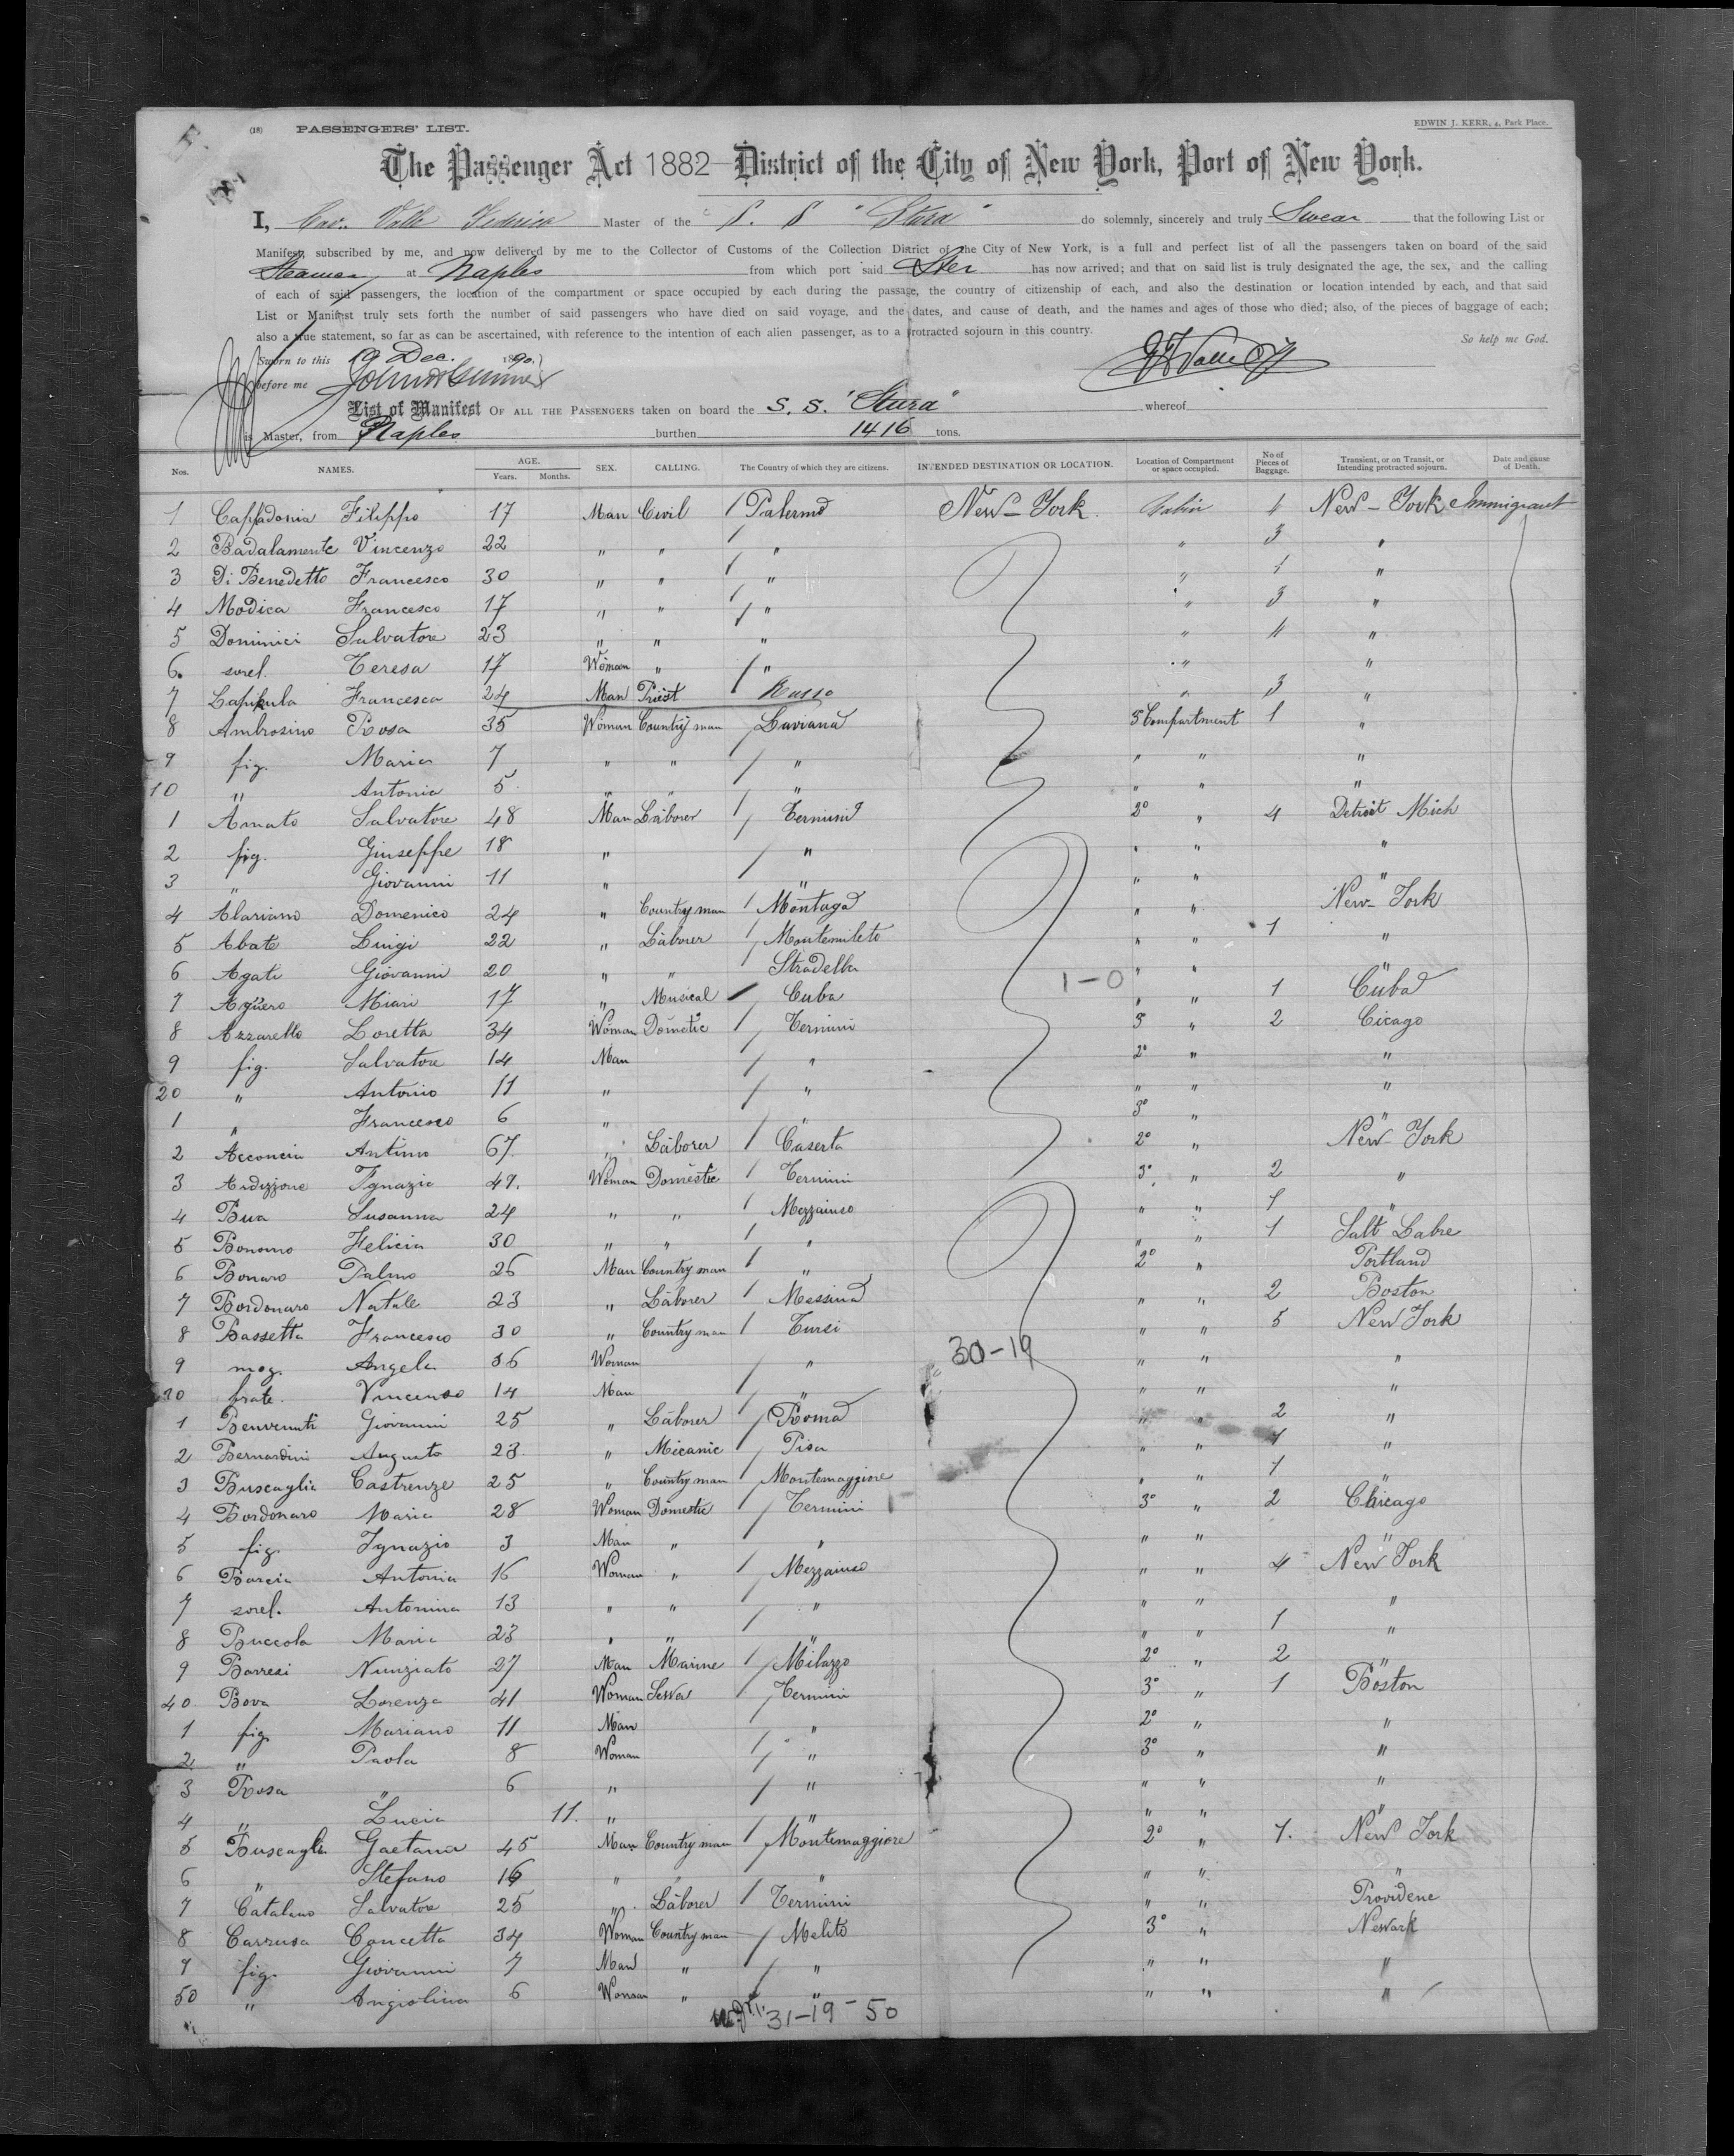 (18) PASSENGERS' LIST.
EDWIN J. KERR, 4, Park Place.
The Passenger Act 1882 District of the City of New York, Port of New York.
I, Cav. Valle Federico Master of the S. S "Stura" do solemnly, sincerely and truly Swear that the following List or
Manifest, subscribed by me, and now delivered by me to the Collector of Customs of the Collection District of the City of New York, is a full and perfect list of all the passengers taken on board of the said
Steamer at Naples from which port said Ster has now arrived; and that on said list is truly designated the age, the sex, and the calling
of each of said passengers, the location of the compartment or space occupied by each during the passage, the country of citizenship of each, and also the destination or location intended by each, and that said
List or Manifest truly sets forth the number of said passengers who have died on said voyage, and the dates, and cause of death, and the names and ages of those who died; also, of the pieces of baggage of each;
also a true statement, so far as can be ascertained, with reference to the intention of each alien passenger, as to a protracted sojourn in this country.
So help me God.
Sworn to this 19 Dec. 1890.
before me
List of Manifest OF ALL THE PASSENGERS taken on board the S. S. "Stura" whereof
is Master, from Naples burthen 1416 tons.
Nos. NAMES. AGE. Years. Months. SEX. CALLING. The Country of which they are citizens. INTENDED DESTINATION OR LOCATION. Location of Compartment or space occupied. No of Pieces of Baggage. Transient, or on Transit, or Intending protracted sojourn. Date and cause of Death.
1 Cappadonia Filippo 17 Man Civil / Palermo New-York. Cabin 4 New-York Immigrant
2 Badalamente Vincenzo 22 " " / " " 3 "
3 Di Benedetto Francesco 30 " " / " " 1 "
4 Modica Francesco 17 " " / " " 3 "
5 Dominici Salvatore 23 " " " " 4 "
6. sorel. Teresa 17 Woman " / " " "
7 Francesca 24 Man Priest / Russo " 3 "
8 Ambrosino Rosa 35 Woman Country man / Laviana 3 Compartment 1 "
9 fig. Maria 7 " " / " " " "
10 " Antonia 5 " " / " " " "
1 Amato Salvatore 48 Man Laborer / Termini 2° " 4 Detroit Mich
2 fig. Giuseppe 18 " / " " " "
3 " Giovanni 11 " " " " "
4 Alariano Domenico 24 " Country man / Montaga " " New-York
5 Abate Luigi 22 " Laborer / Montemileto " " 1 "
6 Agati Giovanni 20 " " / Stradella " " "
7 Agüero Miari 17 " Musical / Cuba 1-0 " " 1 Cuba
8 Azzaretto Loretta 34 Woman Dometic / Termini 3 " 2 Cicago
9 fig. Salvatore 14 Man / " 2° " "
20 " Antonio 11 " / " " " "
1 " Francesco 6 " / " 3° " "
2 Acconcia Antimo 67. " Laborer / Caserta 2° " New-York
3 Ardizzone Ignazia 47. Woman Domestic / Termini 3° " 2 "
4 Bua Susanna 24 " " / Mezzaiuso " " 1 "
5 Bonomo Felicia 30 " " / " " " 1 Salt Labre
6 Bonaro Palmo 26 Man Country man / " 2° " Portland
7 Bordonaro Natale 23 " Laborer / Messina " " 2 Boston
8 Bassetta Francesco 30 " Country man / Tursi " " 5 New York
9 mog. Angela 36 Woman / " 30-19 " " "
30 frate. Vincenso 14 Man / " " " "
1 Benvenuti Giovanni 25 " Laborer / Roma " " 2 "
2 Bernardini Augusto 23. " Mecanic / Pisa " " 1 "
3 Buscaglia Castrenze 25 " Country man / Montemaggiore " " 1 "
4 Bordonaro Maria 28 Woman Domestic / Termini 3° " 2 Chicago
5 fig. Ignazio 3 Man " / " " " "
6 Barcia Antonia 16 Woman " / Mezzaiuso " " 4 New York
7 sorel. Antonina 13 " " / " " " "
8 Buccola Maria 23 " " / " " " 1 "
9 Barresi Nunziato 27 Man Marine / Milazzo 2° " 2 "
40. Bova Lorenza 41 Woman Sewer / Termini 3° " 1 Boston
1 fig. Mariano 11 Man / " 2° " "
2 " Paola 8 Woman / " 3° " "
3 Rosa " 6 " / " " " "
4 " Lucia 11. " / " " " "
5 Buscaglia Gaetana 45 Man Country man / Montemaggiore 2° " 7. New York
6 " Stefano 16 " " / " " " "
7 Catalano Salvatore 25 " Laborer / Termini " " Providene
8 Carrusa Concetta 34 Woman Country man / Melito 3° " Newark
9 fig. Giovanni 7 Man " / " " " "
50 " Angiolina 6 Woman " / " " " "
31-19-50